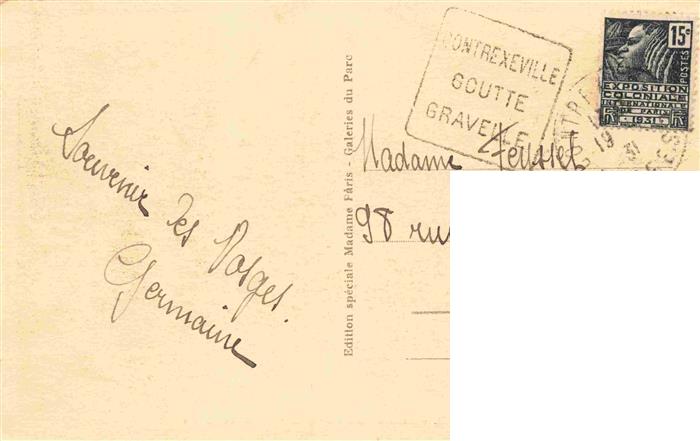 Souvenir des Vosges.
Germaine
Edition spéciale Madame Fâris - Galeries du Parc
CONTREXEVILLE
GOUTTE
GRAVELLE
15c
POSTES
EXPOSITION
COLONIALE
INTERNATIONALE
DE PARIS
1931
19
31
Madame
98 rue